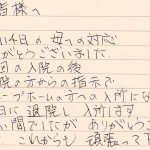 皆様へ
月14日の母への対応
がとうございました。
回の入院の後
院の方からの指示で
ープホームの方への入所にな
日に退院し入所します
い間でしたがありがとうご
これからも頑張って下